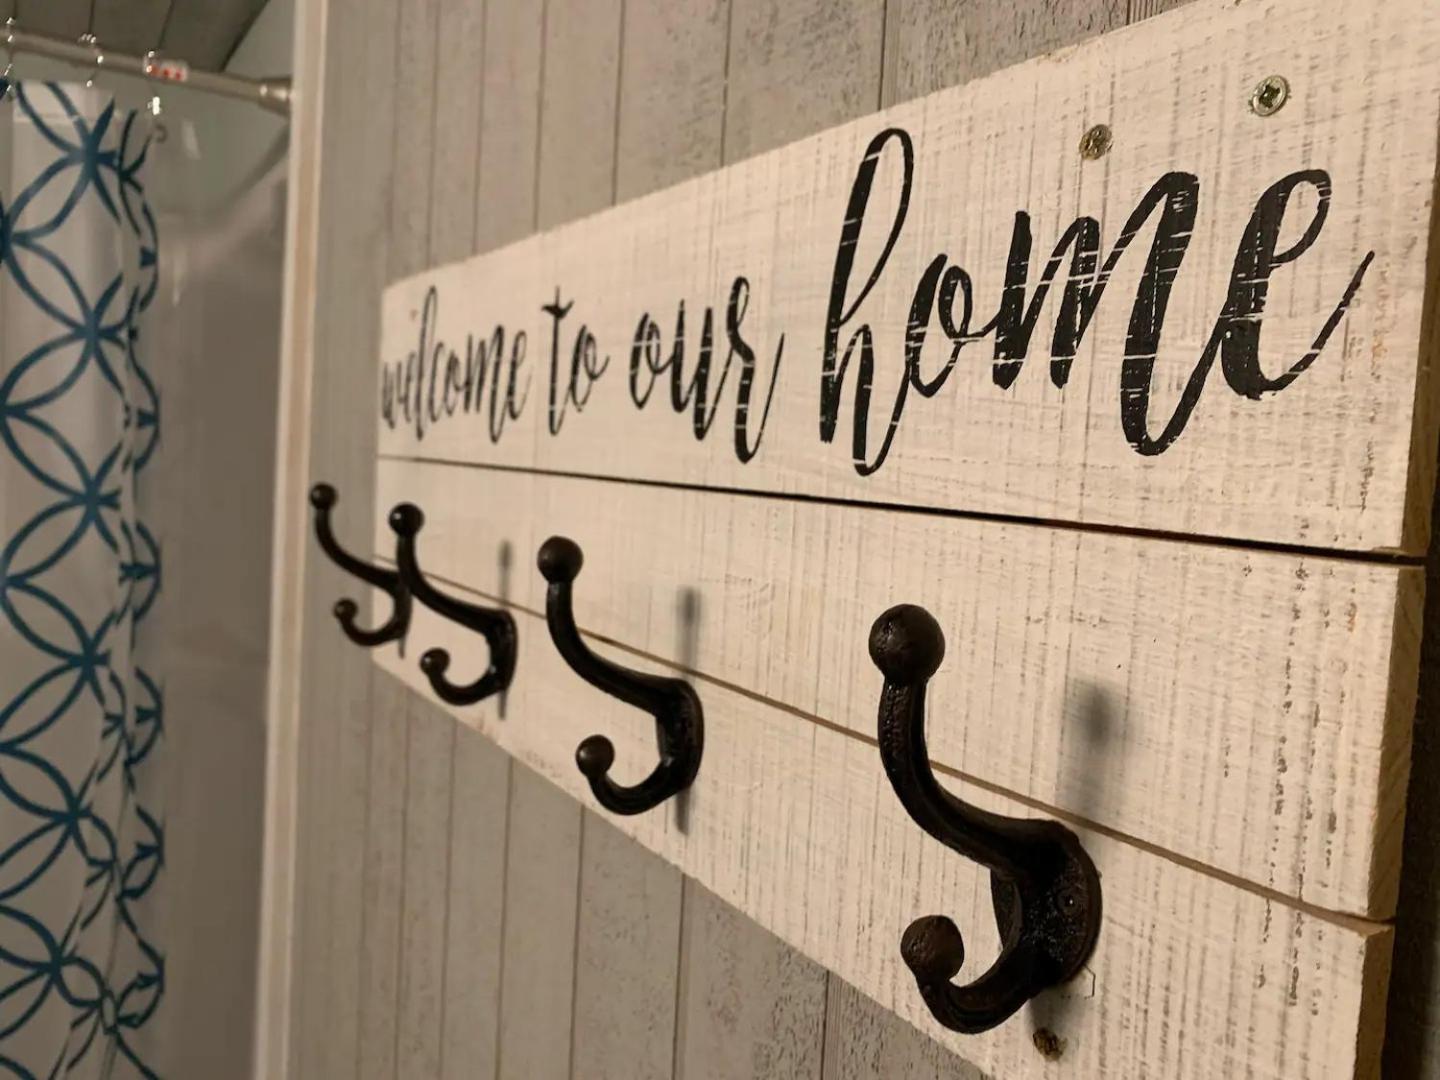 welcome to our home